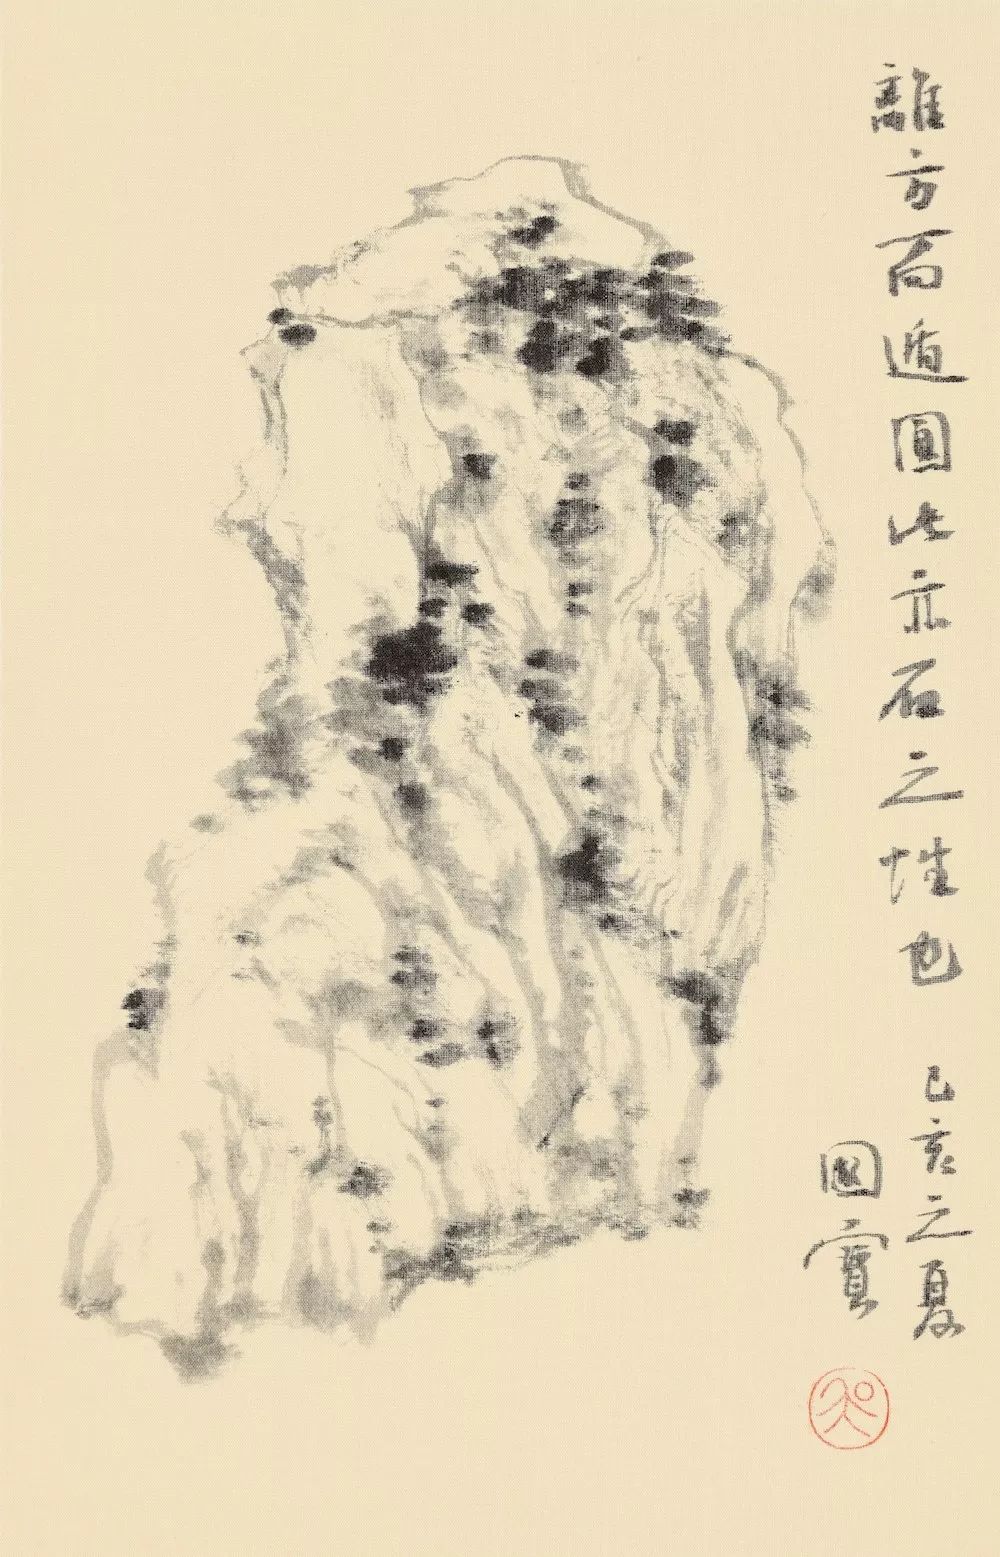 離方而遁圓此亦石之性也 己亥之夏
國寶